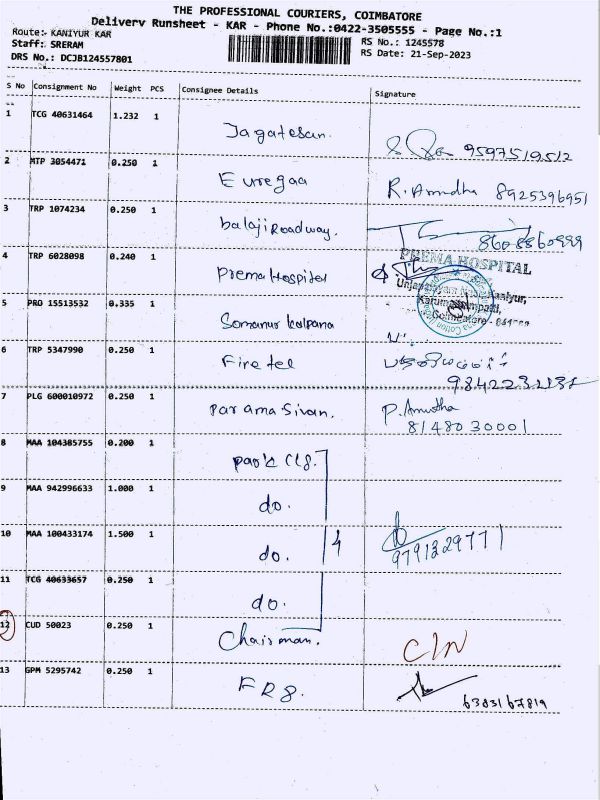 THE PROFESSIONAL COURIERS, COIMBATORE
Delivery Runsheet - KAR - Phone No.:0422-3505555 - Page No.:1
Route:- KANIYUR KAR
RS No.: 1245578
Staff: SRERAM
RS Date: 21-Sep-2023
DRS No.: DCJB124557801
S No Consignment No Weight PCS Consignee Details Signature
1 TCG 40631464 1.232 1 Jagatesan. 9597519512
2 MTP 3054471 0.250 1 Euregaa R. Anudha 8925396951
3 TRP 1074234 0.250 1 balaji Roadway. 8608860999
4 TRP 6028098 0.240 1 Prema Hospital
PREMA HOSPITAL
5 PRO 15513532 0.335 1 Somanur kalpana
Coimbatore -
6 TRP 5347990 0.250 1 Fire tel
7 PLG 600010972 0.250 1 Paramasivan. P. Anustha
8148030001
8 MAA 104385755 0.200 1
9 MAA 942996633 1.000 1 do.
10 MAA 100433174 1.500 1 do. 4 9791329771
11 TCG 40633657 0.250 1 do.
12 CUD 50023 0.250 1 Chairman. CIN
13 GPM 5295742 0.250 1 FRG. 6383167819